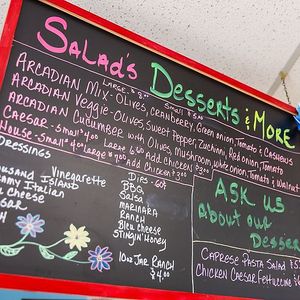 Salad's Desserts & MORE
LARGE $8 Small $5.00
ARCADIAN MIX - OLIVES, CRANBERRY, Green onion, Tomato & CASHEWS
ARCADIAN VEGGIE - OLIVES, Sweet Pepper, Zuchini, Red onion, Tomato
ARCADIAN CUCUMBER with Olives, Mushroom, White onion, Tomato & Walnut
CAESAR - Small $4.00 Large 6.00 Add CHICKEN $3.00
House - Small $4.00 Large $7.00 Add Chicken 3.00
DRESSINGS
Vinegarette
ISLAND
Italian
CHEESE
Dips - 60¢
BBQ
Salsa
MARINARA
RANCH
Bleu CHEESE
STINGIN' HONEY
10oz JAR RANCH
$4.00
ASK us
About our
Dessert
CAPRESE PASTA SALAD
CHICKEN CAESAR, FETTUCINE